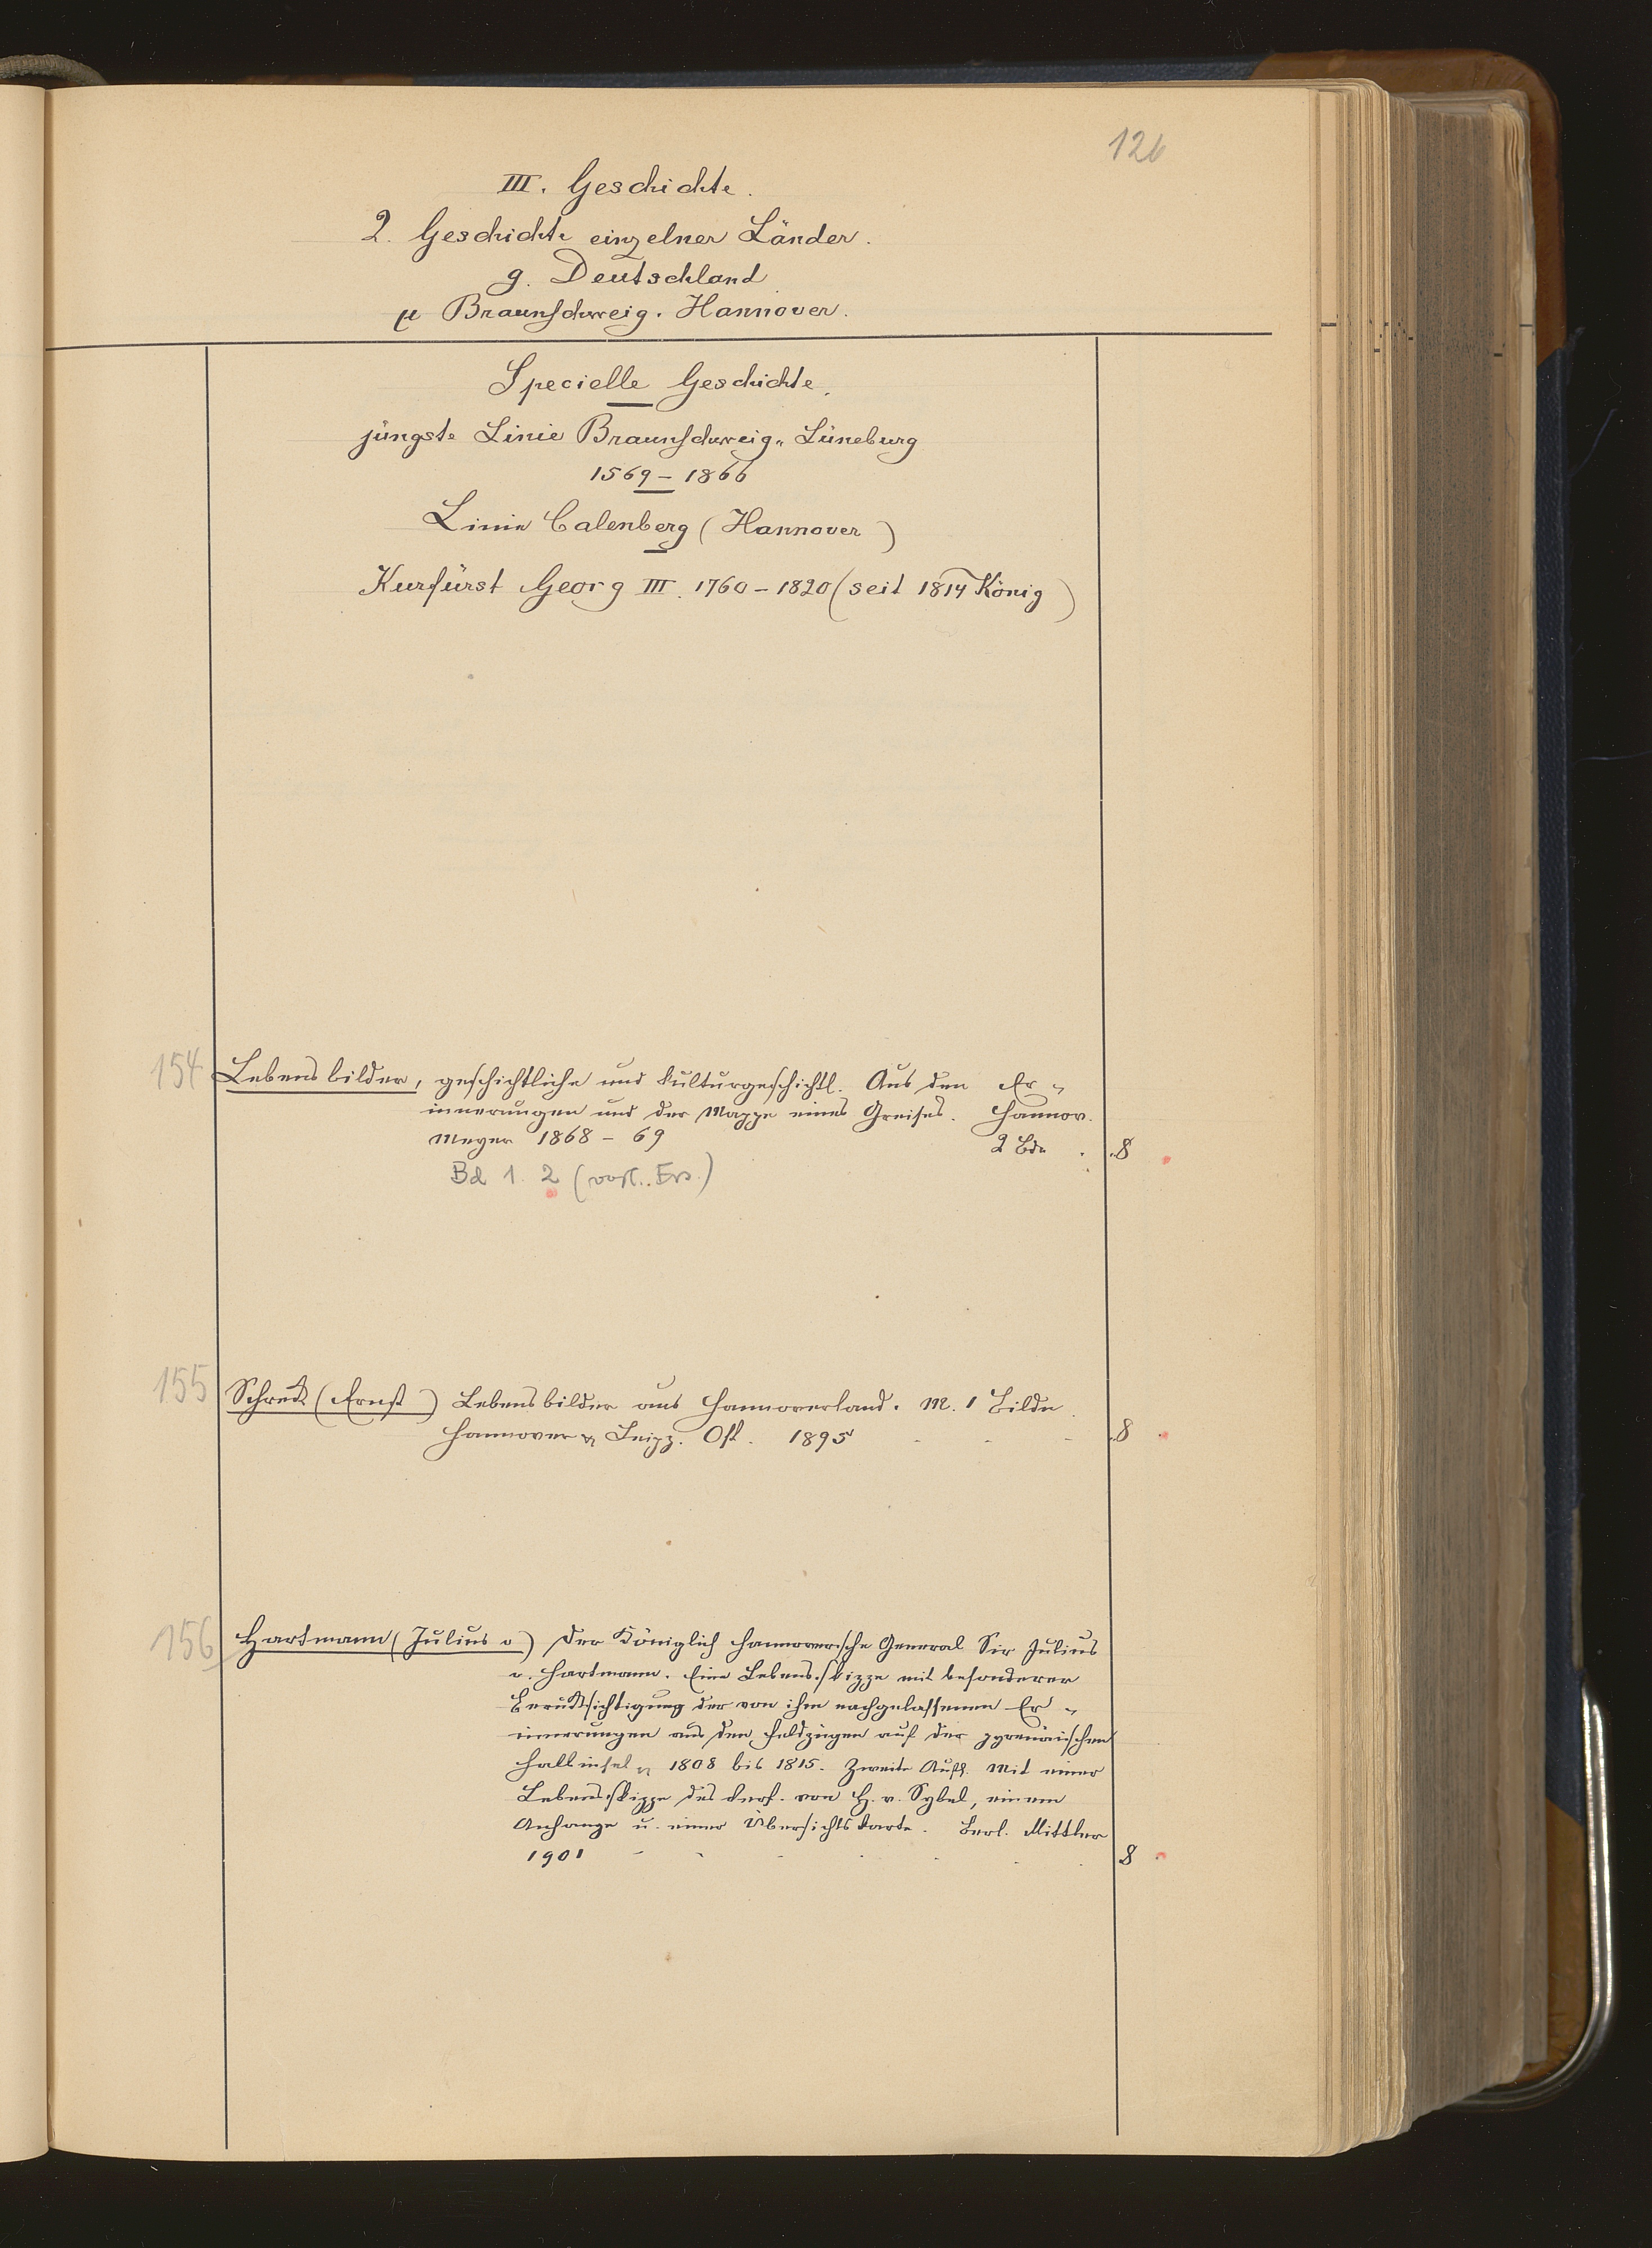 126
III. Geschichte.
2. Geschichte einzelner Länder.
g. Deutschland
μ Braunschweig. Hannover.
Specielle Geschichte.
jüngste Linie Braunschweig-Lüneburg
1569 – 1866
Linie Calenberg (Hannover)
Kurfürst Georg III. 1760 – 1820 (seit 1814 König)
154 Lebensbilder, geschichtliche und kulturgeschichtl. Aus den Er-
innerungen und der Mappe eines Greises. Hannov.
Meyer 1868 – 69 2 Bde . . 8
Bd 1. 2 (verl. Ers.)
155 Schreck (Ernst) Lebensbilder aus Hannoverland. M. 1 Bilde.
Hannover & Leipz. Ost. 1895 - - - 8
156 Hartmann (Julius v) Der Königlich Hannoversche General Sir Julius
v. Hartmann. Eine Lebensskizze mit besonderer
Berücksichtigung der von ihm nachgelassenen Er-
innerungen aus den Feldzügen auf der pyrenäischen
Halbinsel 1808 bis 1815. Zweite Aufl. Mit einer
Lebensskizze des Verf. von H. v. Sybel, einem
Anhange u. einer Übersichtskarte. Berl. Mittler
1901 - - - - - - 8